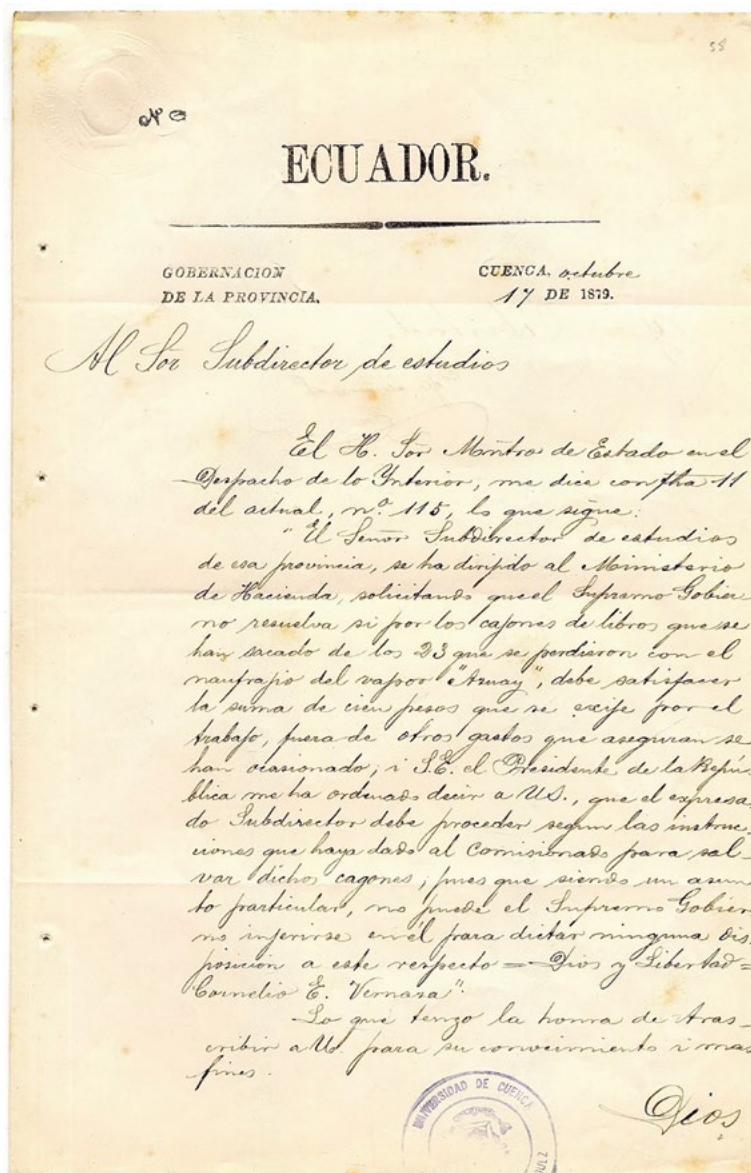 58
Nº
ECUADOR.
GOBERNACION
DE LA PROVINCIA.
CUENCA, octubre
17 DE 1879.
Al Sor Subdirector de estudios
El H. Sor Mintro de Estado en el
Despacho de lo Ynterior, me dice con fha 11
del actual, nº 115, lo que sigue:
"El Señor Subdirector de estudios
de esa provincia, se ha dirijido al Ministerio
de Hacienda, solicitando que el Supremo Gobier
no resuelva si por los cajones de libros que se
han sacado de los 23 que se perdieron con el
naufrajio del vapor "Azuay", debe satisfacer
la suma de cien pesos que se exije por el
trabajo, fuera de otros gastos que aseguran se
han ocasionado; i S.E. el Presidente de la Repú
blica me ha ordenado decir a US., que el expresa
do Subdirector debe proceder segun las instruc-
ciones que haya dado al Comisionado para sal-
var dichos cagones, pues que siendo un asun
to particular, no puede el Supremo Gobier
no injerirse en él para dictar ninguna dis
posicion a este respecto = Dios y Libertad =
Cornelio E. Vernaza".
Lo que tengo la honra de tras-
cribir a Us. para su conocimiento i mas
fines.
Dios
UNIVERSIDAD DE CUENCA